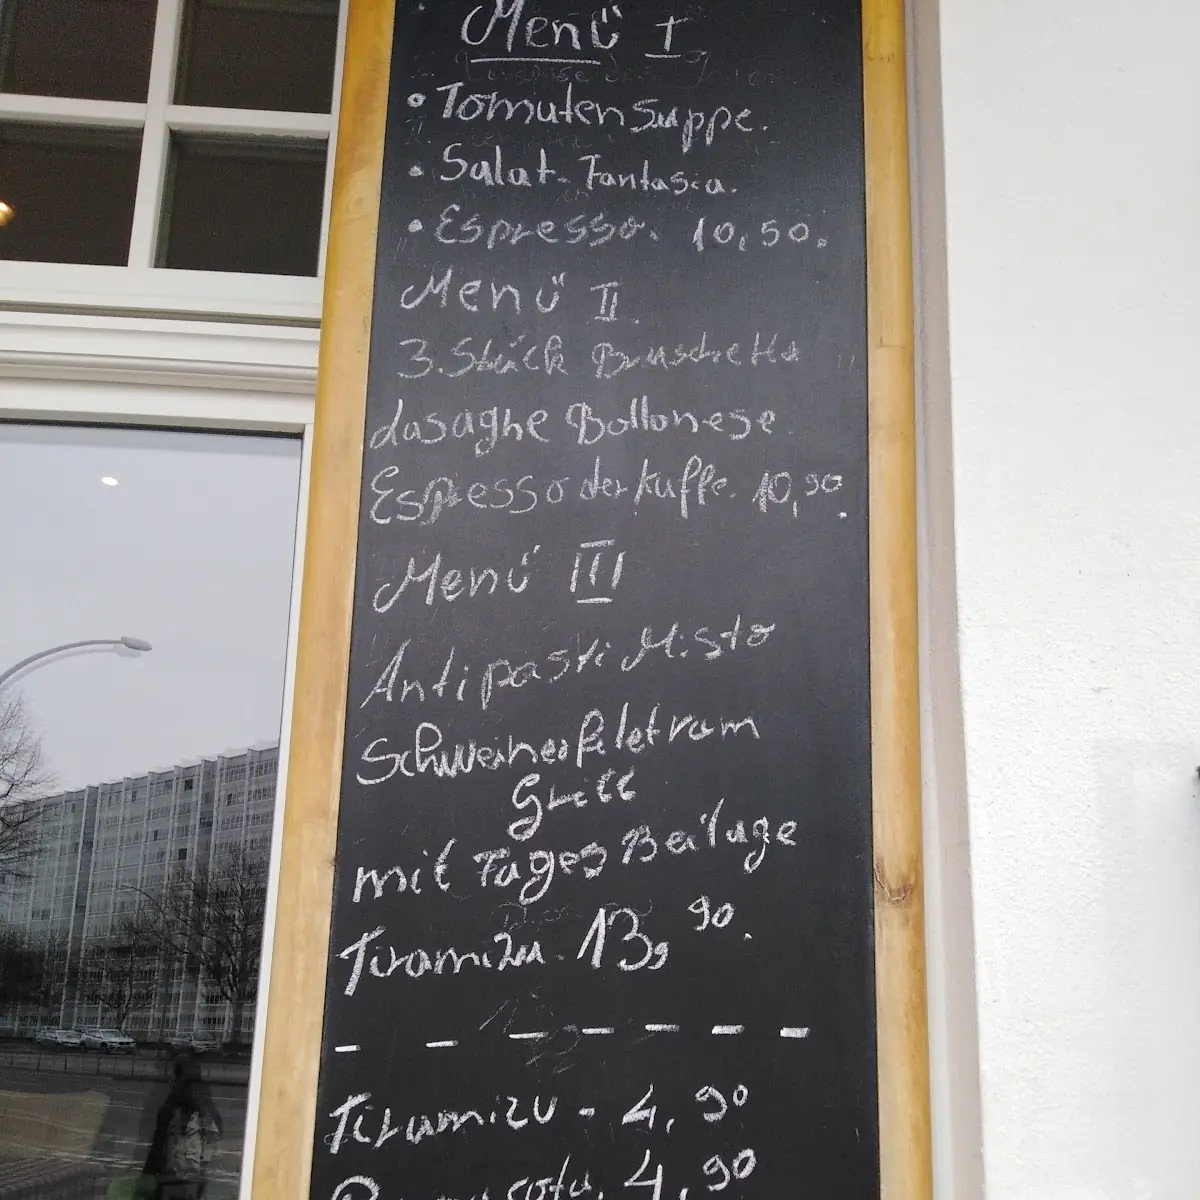 Menü I
• Tomaten Suppe.
• Salat - Fantasia.
• Espresso. 10,50.
Menü II.
3. Stück Bruschetta
Lasaghe Bollonese.
Espresso der kaffe. 10,90.
Menü III
Antipasti Misto
Schweinefiletvam
Grill
mit Tages Beilage
Tiramizu. 13,90.
- - - - - - -
Tiramizu - 4,90
4,90